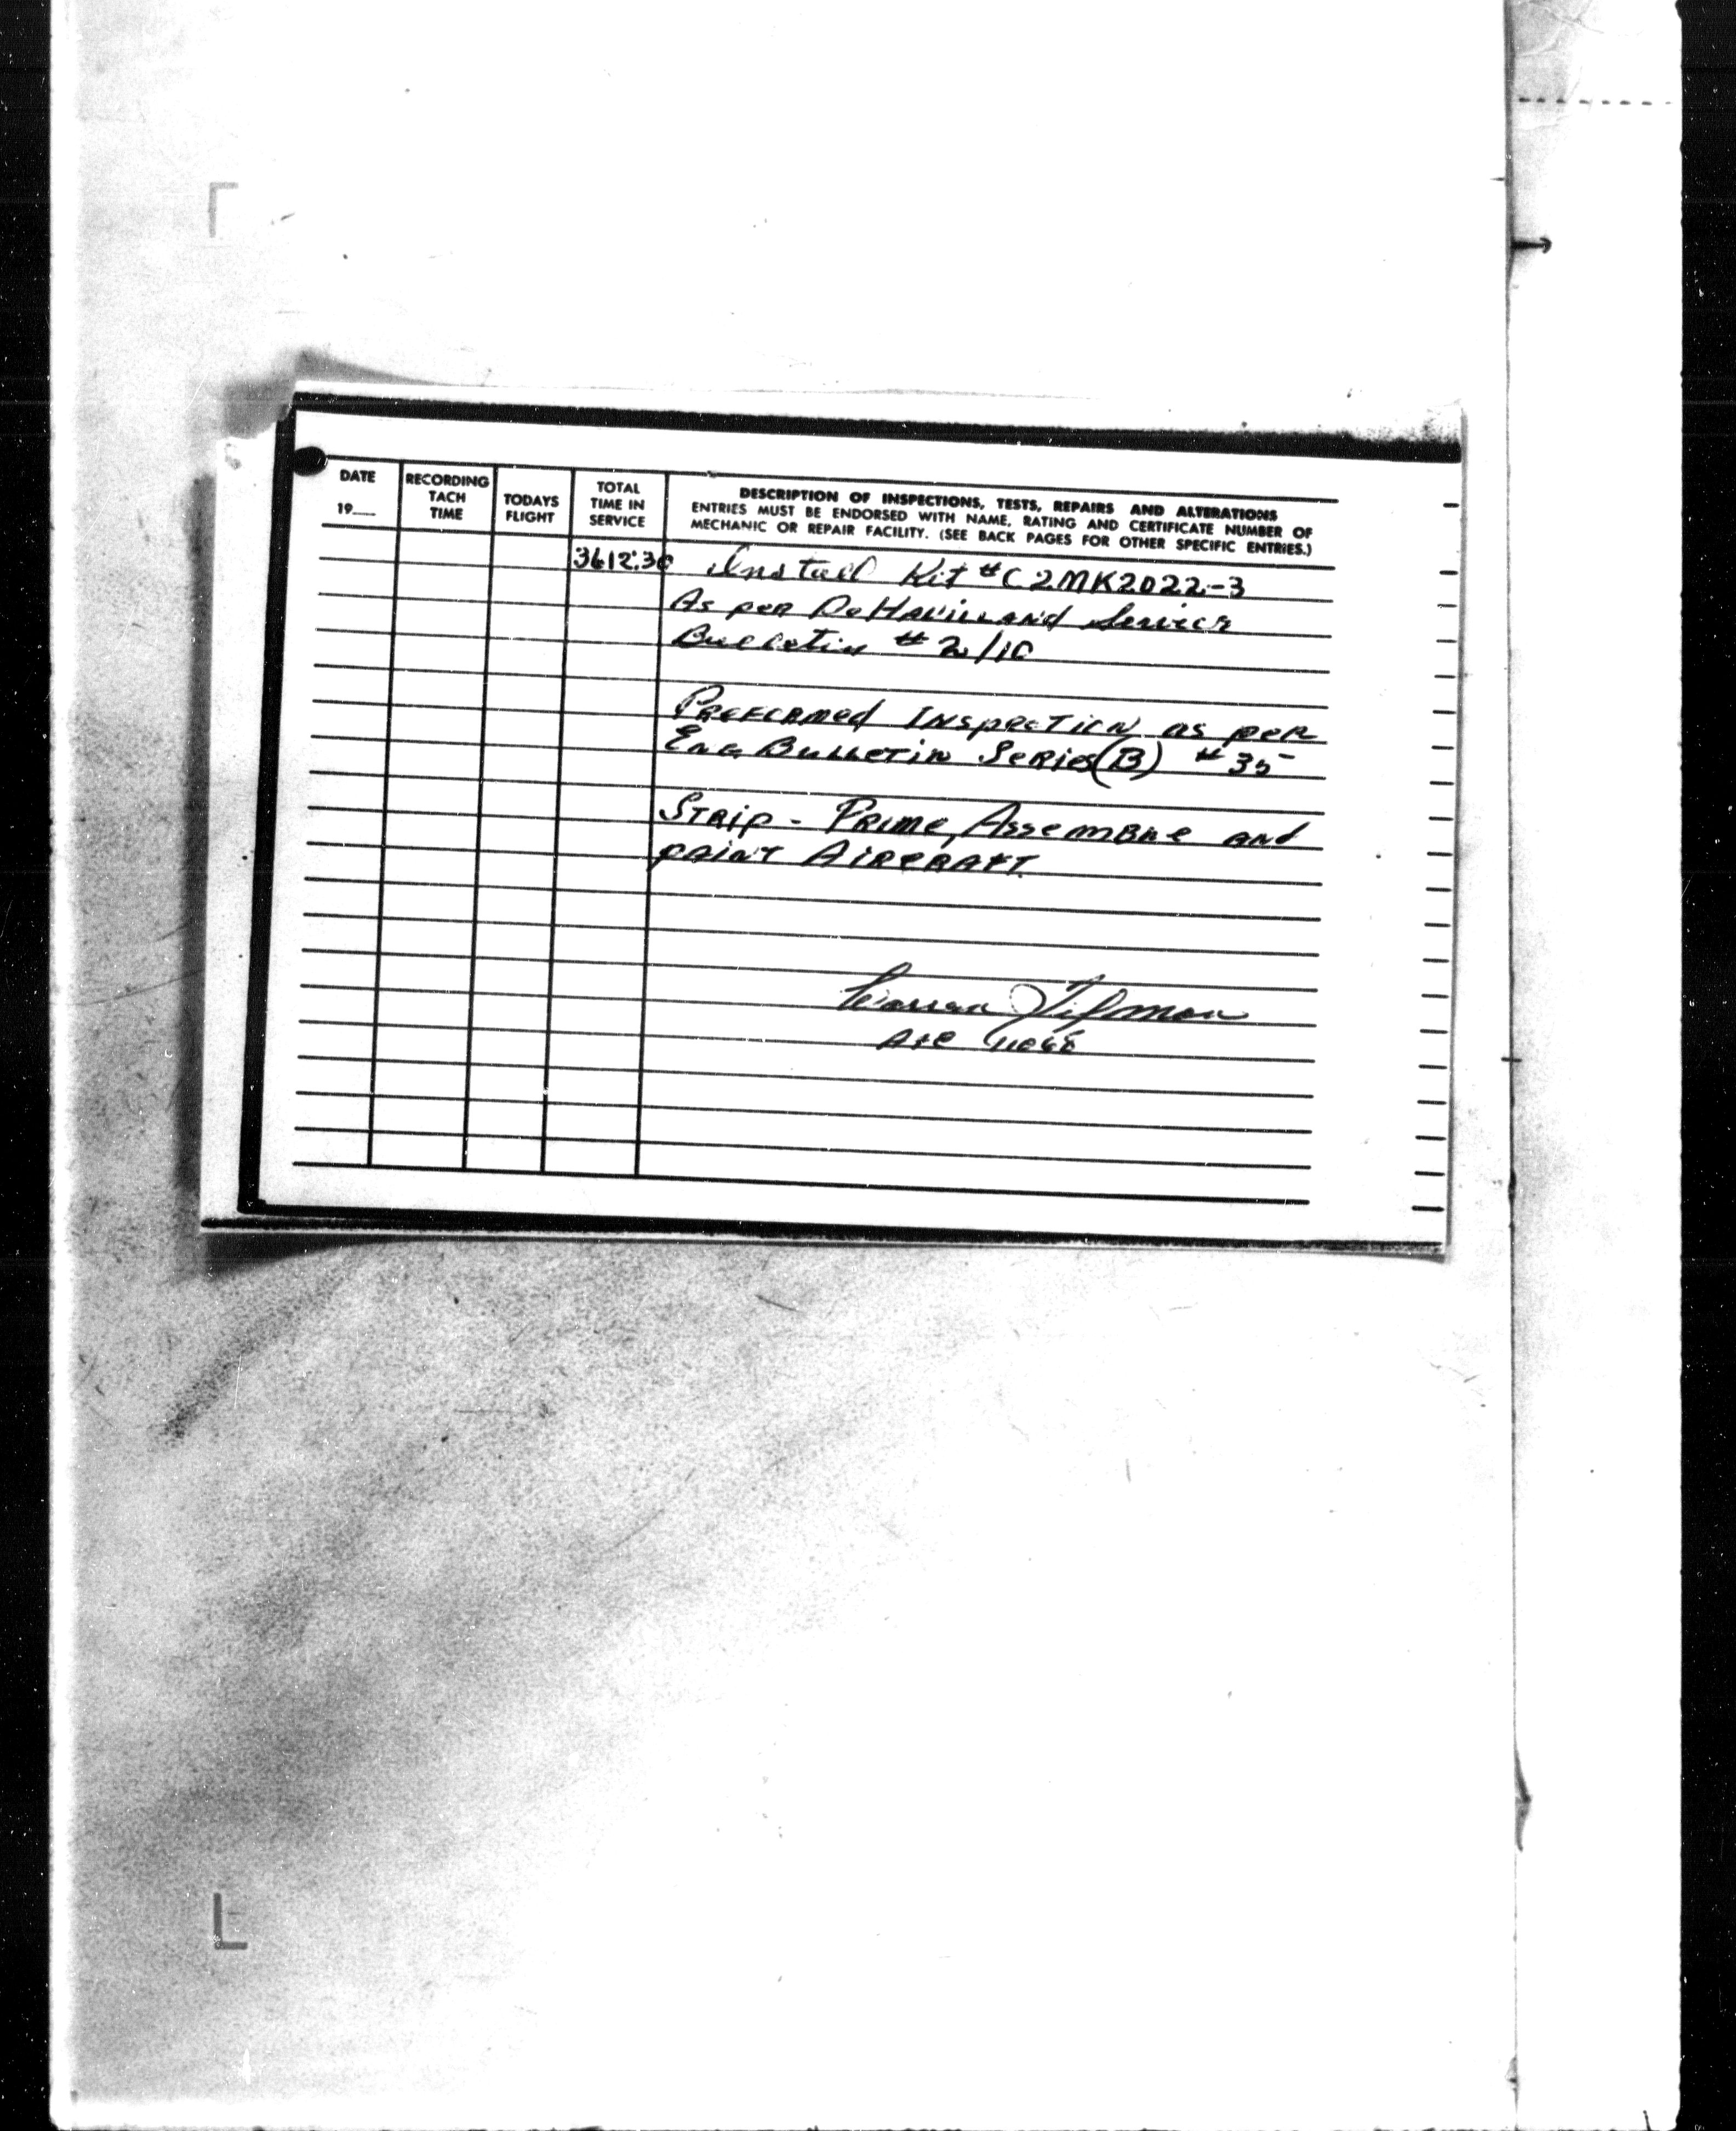 DATE
19__
RECORDING
TACH
TIME
TODAYS
FLIGHT
TOTAL
TIME IN
SERVICE
DESCRIPTION OF INSPECTIONS, TESTS, REPAIRS AND ALTERATIONS
ENTRIES MUST BE ENDORSED WITH NAME, RATING AND CERTIFICATE NUMBER OF
MECHANIC OR REPAIR FACILITY. (SEE BACK PAGES FOR OTHER SPECIFIC ENTRIES.)
3612:30 Install Kit #C2MK2022-3
As per DeHavilland Service
Bulletin # 2/10
Preformed Inspection as per
Eng Bulletin Series (B) #35
Strip - Prime, Assemble and
paint Aircraft.
A&P